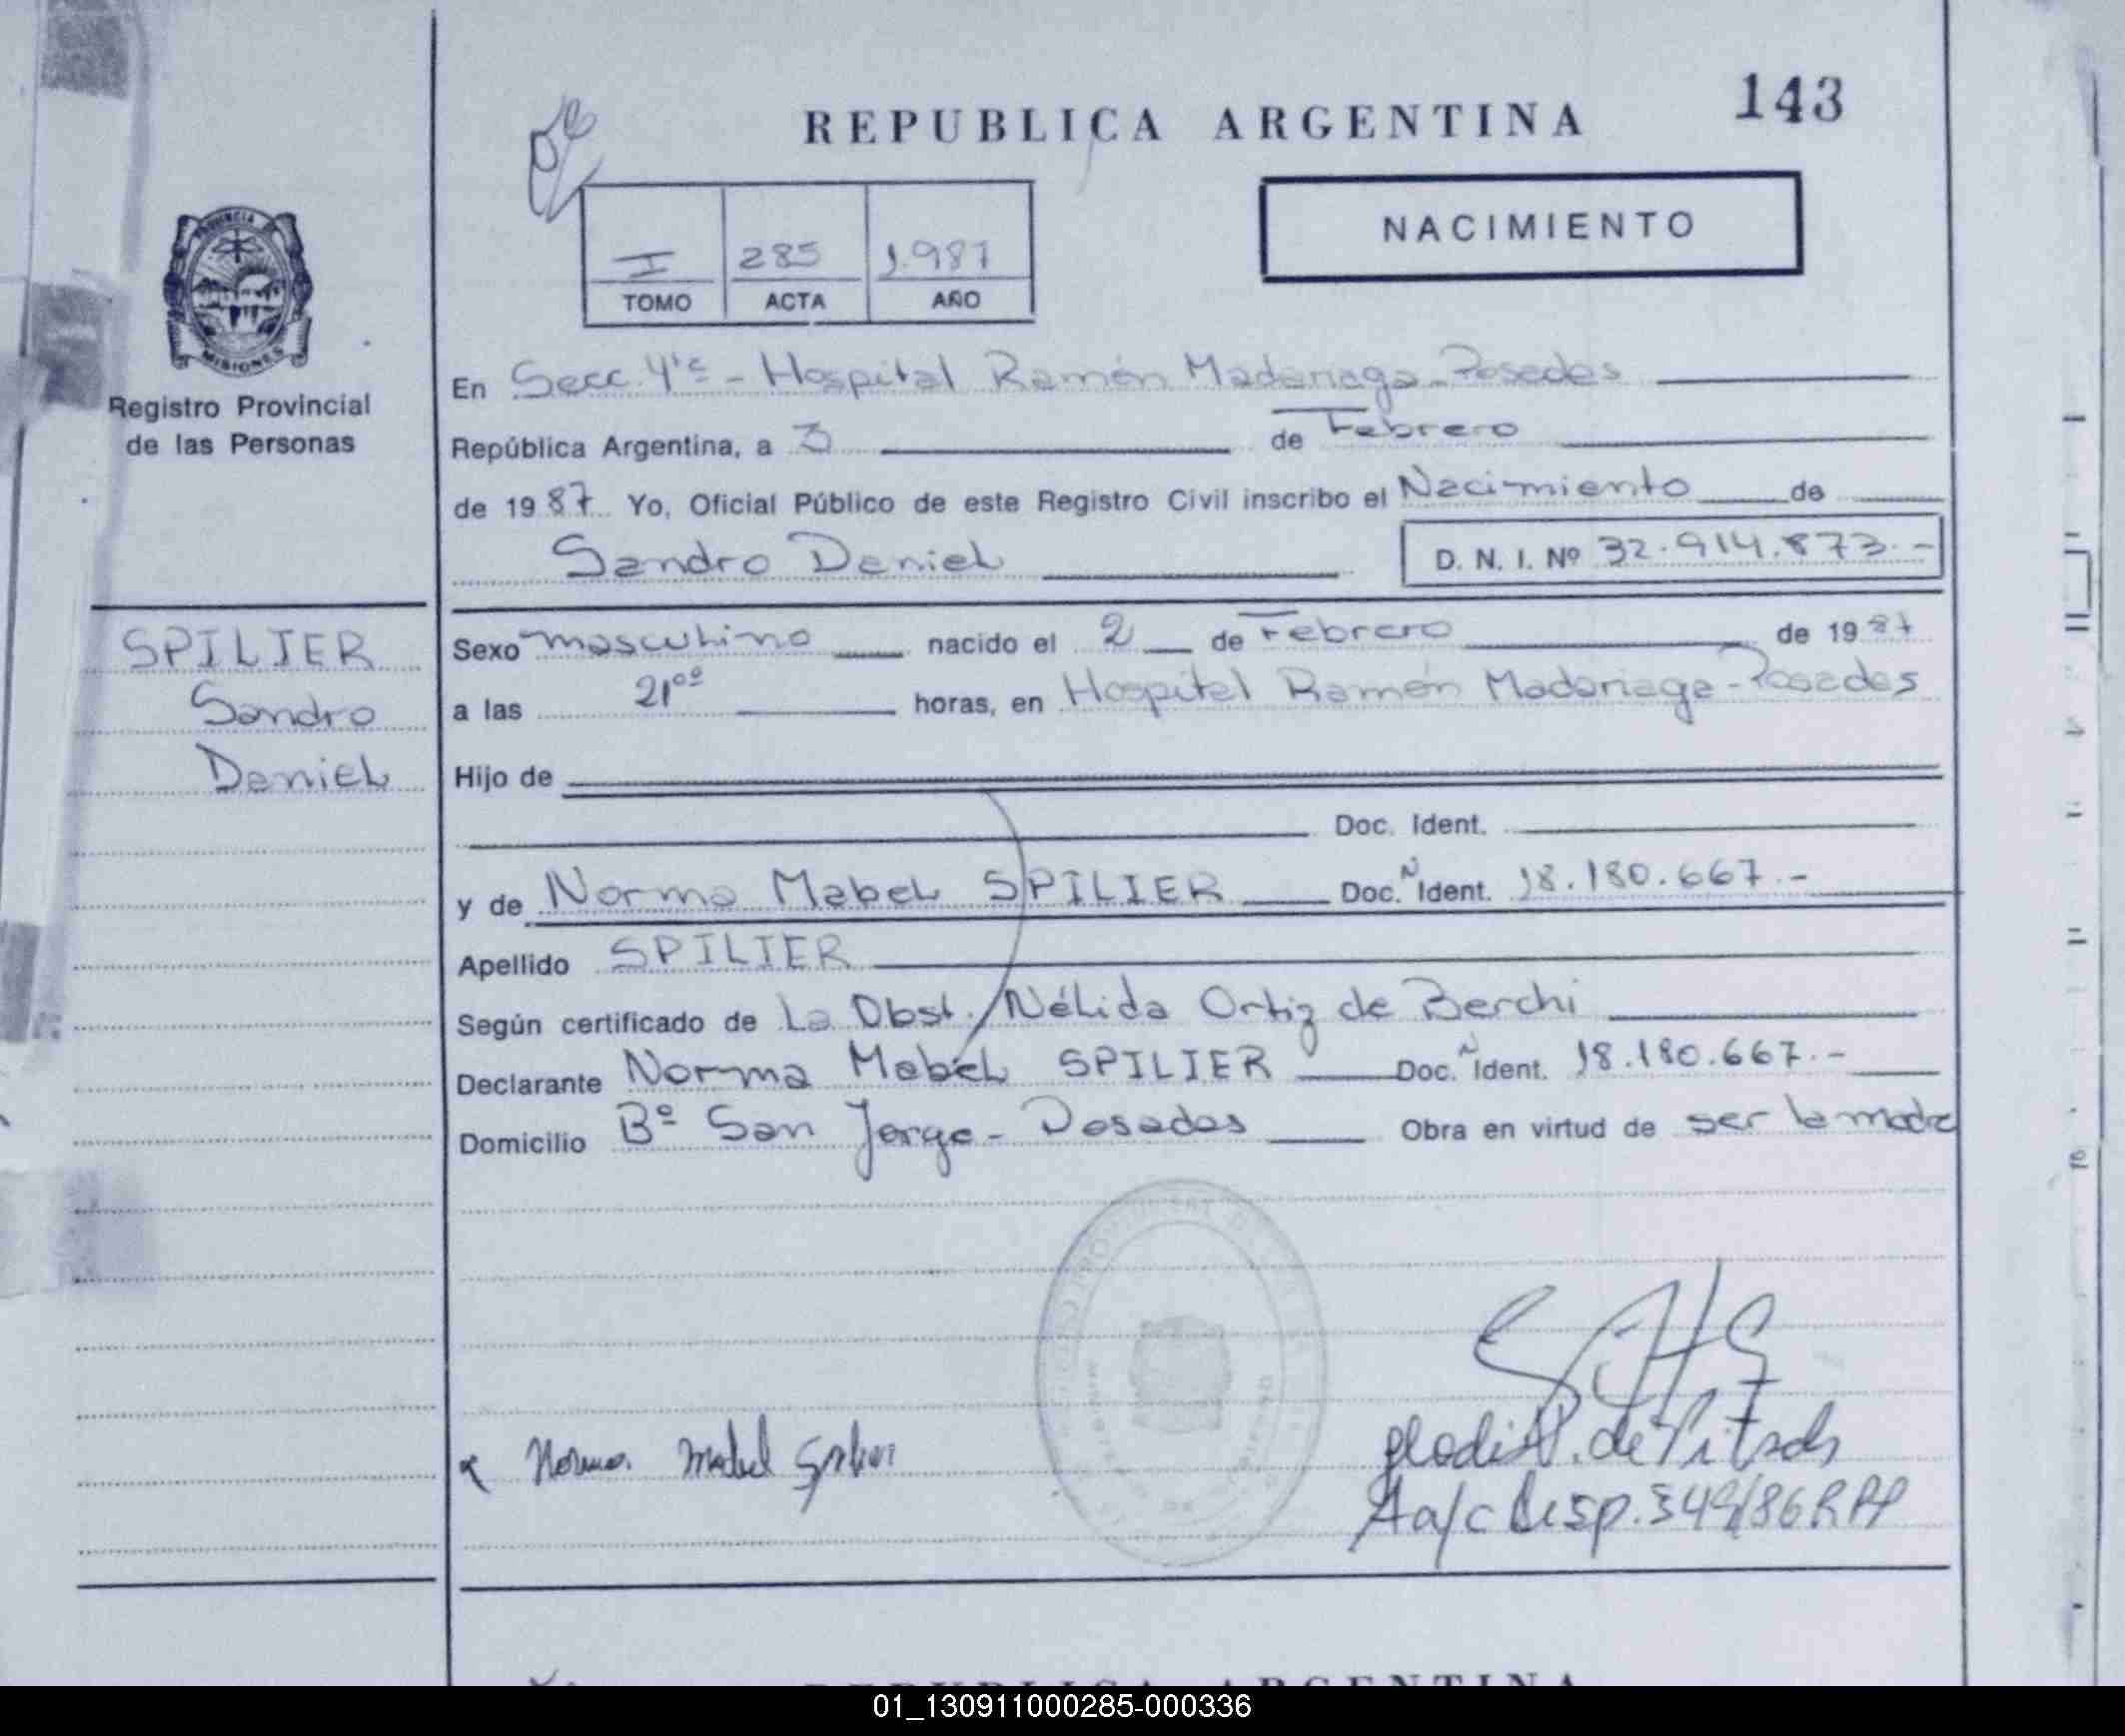 143
REPUBLICA ARGENTINA
NACIMIENTO
I 285 1.987
TOMO ACTA AÑO
PROVINCIA
MISIONES
Registro Provincial
de las Personas
En Secc. 4ta - Hospital Ramón Madariaga - Posadas
República Argentina, a 3 de Febrero
de 1987 Yo, Oficial Público de este Registro Civil inscribo el Nacimiento de
Sandro Daniel D. N. I. Nº 32.914.873.-
SPILIER
Sandro
Daniel
Sexo masculino nacido el 2 de Febrero de 1987
a las 21 00 horas, en Hospital Ramón Madariaga - Posadas
Hijo de
Doc. Ident.
y de Norma Mabel SPILIER Doc. N Ident. 18.180.667.-
Apellido SPILIER
Según certificado de La Obst. Nélida Ortiz de Berchi
Declarante Norma Mabel SPILIER Doc. N Ident. 18.180.667.-
Domicilio Bº San Jorge - Posadas Obra en virtud de ser la madre
Norma Mabel Spilier
A a/c Disp. 349/86 RPP
REPUBLICA ARGENTINA
01_130911000285-000336